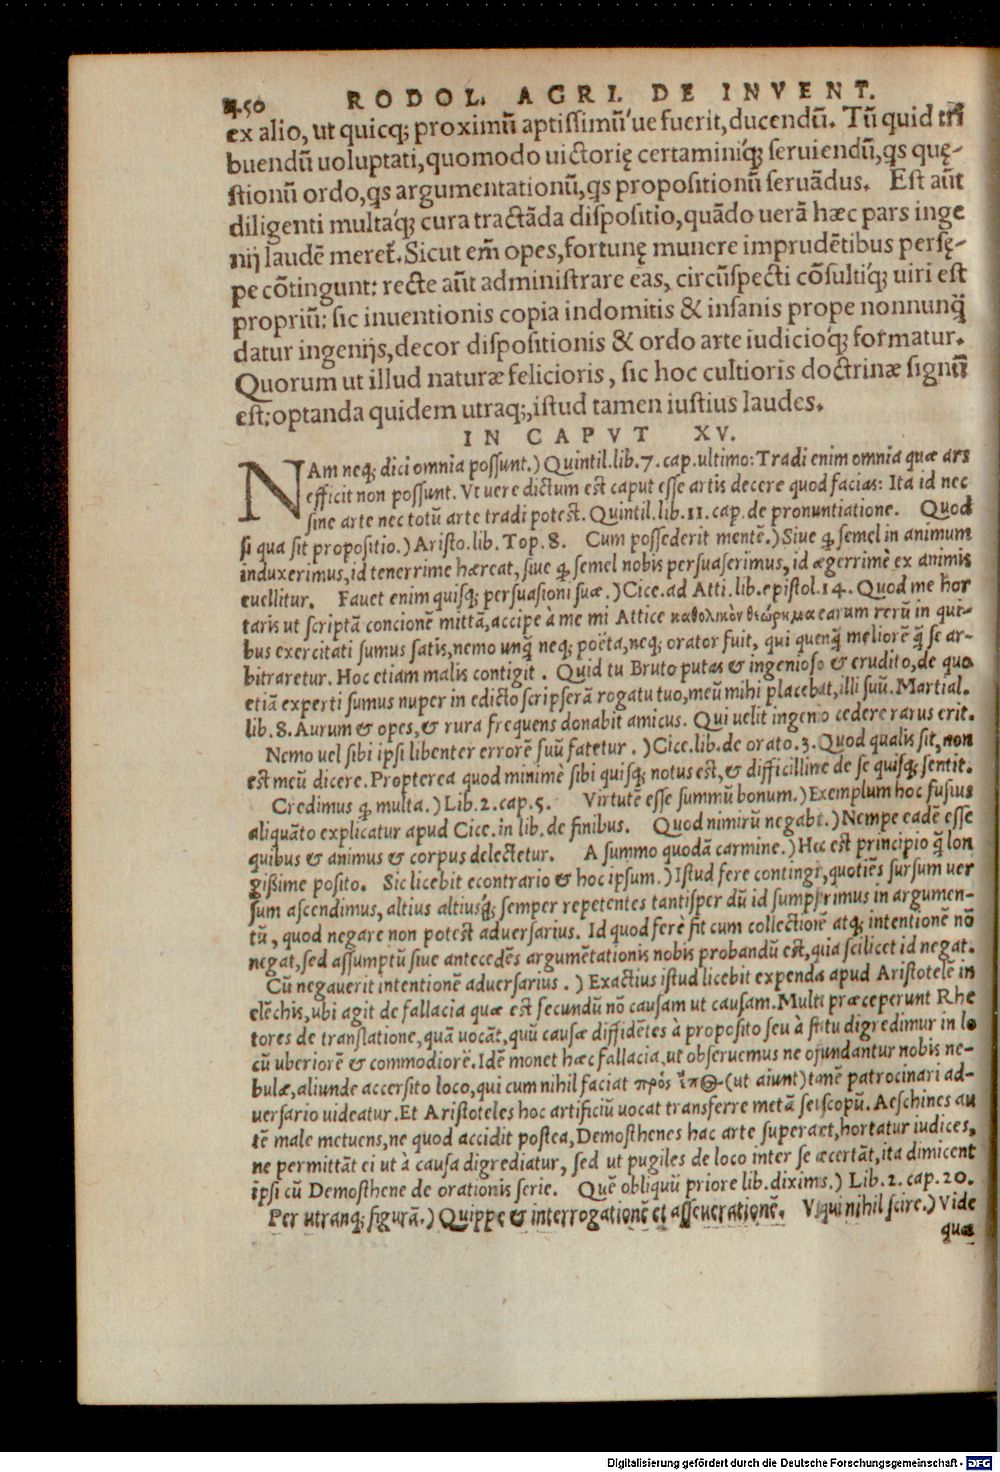 450 RODOL. AGRI. DE INVENT.
ex alio, ut quicq; proximũ aptiſſimũ'ue fuerit,ducendũ. Tũ quid tri
buendũ uoluptati,quomodo uictorię certaminíq; ſeruiendũ,q̃s quę-
ſtionũ ordo,q̃s argumentationũ,q̃s propoſitionũ ſeruãdus. Eſt aũt
diligenti multáq; cura tractãda diſpoſitio,quãdo uerã hæc pars inge
nij laudẽ meret̃. Sicut em̃ opes,fortunę munere imprudẽtibus perſę-
pe cõtingunt: recte aũt adminiſtrare eas, circũſpecti cõſultíq; uiri eſt
propriũ: ſic inuentionis copia indomitis & inſanis prope nonnunq̃
datur ingenijs,decor diſpoſitionis & ordo arte iudicióq; formatur.
Quorum ut illud naturæ felicioris, ſic hoc cultioris doctrinæ ſignũ
eſt: optanda quidem utraq;,iſtud tamen iuſtius laudes.
IN CAPVT XV.
NAm neq; dici omnia poſſunt.) Quintil.lib.7.cap.ultimo: Tradi enim omnia quæ ars
efficit non poſſunt. Vt uere dictum eſt caput eſſe artis decere quod facias: Ita id nec
ſine arte nec totũ arte tradi poteſt. Quintil.lib.11.cap.de pronuntiatione. Quod
ſi qua ſit propoſitio.) Ariſto.lib.Top.8. Cum poſſederit mentẽ.) Siue q̃ ſemel in animum
induxerimus,id tenerrime hæreat, ſiue q̃ ſemel nobis perſuaſerimus, id ægerrimè ex animis
euellitur. Fauet enim quiſq; perſuaſioni ſuæ.) Cice.ad Atti.lib.epiſtol.14. Quod me hor
taris ut ſcriptã concionẽ mittã,accipe à me mi Attice καθολικὸν θεώρημα earum rerũ in qui-
bus exercitati ſumus ſatis,nemo unq̃ neq; poëta,neq; orator fuit, qui quenq̃ meliorẽ q̃ ſe ar-
bitraretur. Hoc etiam malis contigit. Quid tu Bruto putas & ingenioſo & erudito,de quo
etiã experti ſumus nuper in edicto ſcripſerã rogatu tuo,meũ mihi placebat,illi ſuũ. Martial.
lib.8. Aurum & opes,& rura frequens donabit amicus. Qui uelit ingenio cedere rarus erit.
Nemo uel ſibi ipſi libenter errorẽ ſuũ fatetur.) Cice.lib.de orato.3. Quod qualis ſit, non
eſt meũ dicere. Propterea quod minimè ſibi quiſq; notus eſt,& difficillime de ſe quiſq; ſentit.
Credimus q̃ multa.) Lib.2.cap.5. Virtutẽ eſſe ſummũ bonum.) Exemplum hoc fuſius
aliquãto explicatur apud Cice.in lib.de finibus. Quod nimirũ negabt.) Nempe eadẽ eſſe
quibus & animus & corpus delectetur. A ſummo quodã carmine.) Hec eſt principio q̃ lon
giſſime poſito. Sic licebit econtrario & hoc ipſum.) Iſtud fere contingt, quotiẽs ſurſum uer
ſum aſcendimus, altius altiusq́; ſemper repetentes tantiſper dũ id ſumpſrimus in argumen-
tũ, quod negare non poteſt aduerſarius. Id quod ferè fit cum collectiorẽ atq; intentionẽ nõ
negat,ſed aſſumptũ ſiue antecedẽs argumẽtationis nobis probandũ eſt,quia ſcilicet id negat.
Cũ negauerit intentionẽ aduerſarius.) Exactius iſtud licebit expenda apud Ariſtotelẽ in
elẽchis,ubi agit de fallacia quæ eſt ſecundũ nõ cauſam ut cauſam. Multi præceperunt Rhe
tores de tranſlatione, quã uocãt, quũ cauſæ diffidẽtes à propoſito ſeu à ſttu digredimur in lo
cũ uberiorẽ & commodiorẽ. Idẽ monet hæc fallacia,ut obſeruemus ne ofundantur nobis ne-
bulæ,aliunde accerſito loco,qui cum nihil faciat πρός ἔπος (ut aiunt) tamẽ patrocinari ad-
uerſario uideatur. Et Ariſtoteles hoc artificiũ uocat transferre metã ſeu ſcopũ. Aeſchines au
tẽ male metuens,ne quod accidit poſtea,Demoſthenes hac arte ſuperaet,hortatur iudices,
ne permittãt ei ut à cauſa digrediatur, ſed ut pugiles de loco inter ſe æcertãt,ita dimicent
ipſi cũ Demoſthene de orationis ſerie. Quẽ obliquũ priore lib.dixims.) Lib.2.cap.20.
Per utranq; figurã.) Quippe & interrogationẽ et aſſeuerationẽ. V qui nihil ſcire.) Vide
quæ
Digitalisierung gefördert durch die Deutsche Forschungsgemeinschaft - DFG